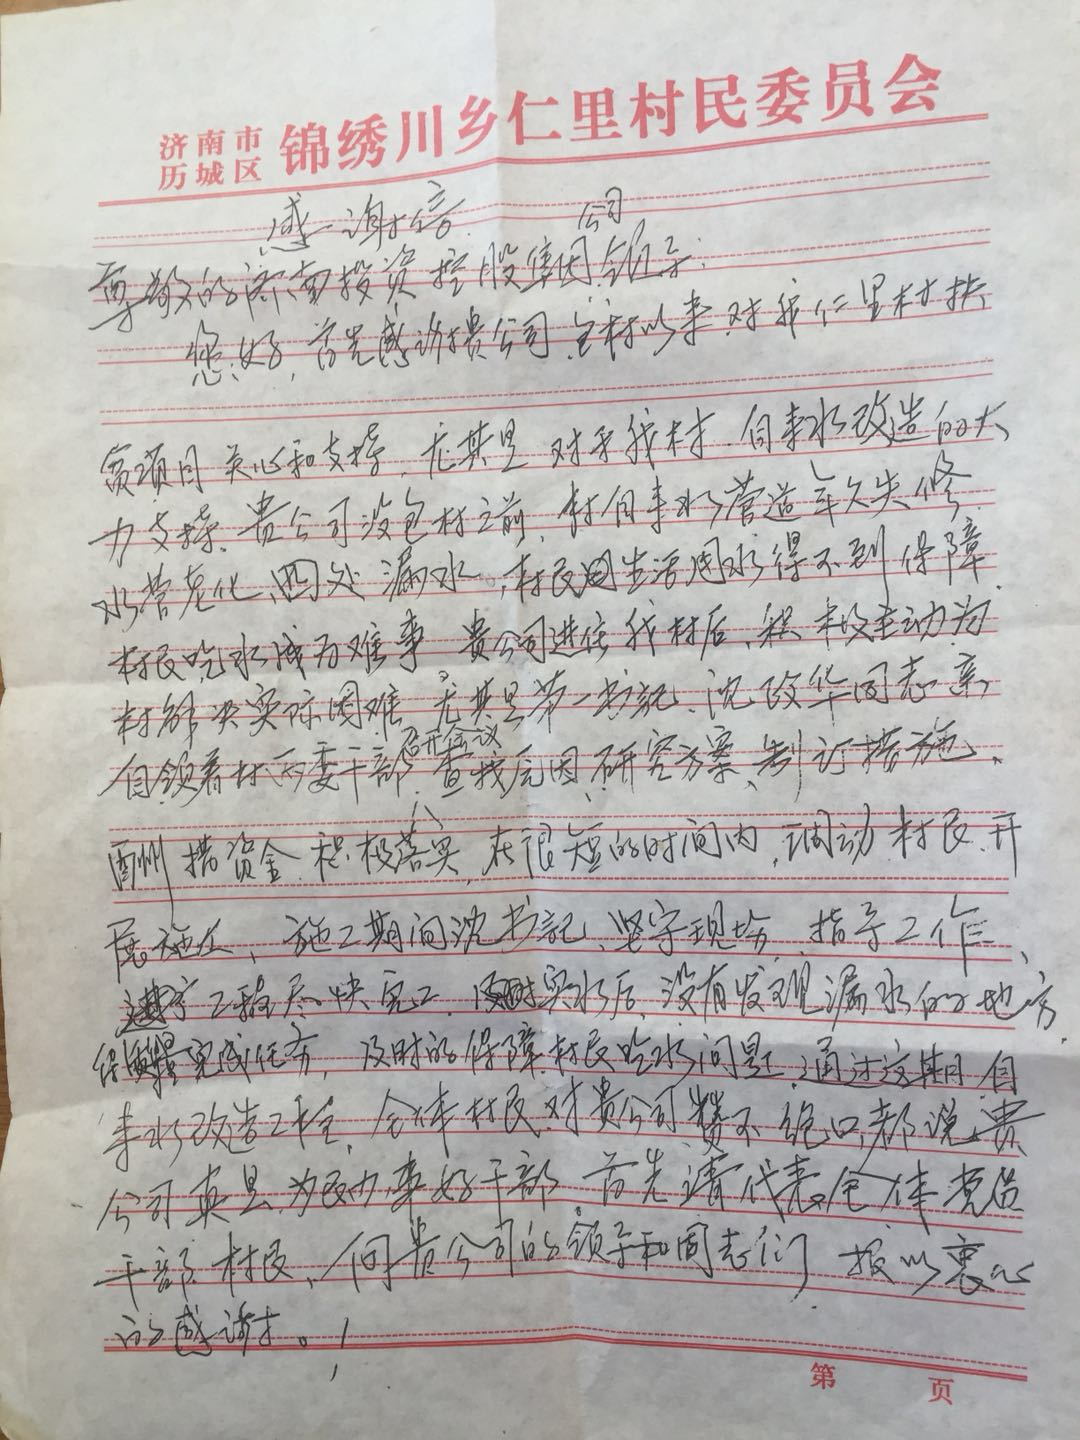 济南市
历城区 锦绣川乡仁里村民委员会
感谢信
尊敬的济南投资控股集团公司领导:
您好,首先感谢贵公司包村以来,对我仁里村扶
贫项目关心和支持,尤其是对我村自来水改造的大
力支持。贵公司没包村之前,村自来水管道年久失修
水管老化、四处漏水,村民生活用水得不到保障
村民吃水成为难事 贵公司进住我村后,积极主动为
村解决实际困难 尤其是第一书记、沈政华同志亲
自领着村两委干部召开会议 查找原因、研究方案、制订措施、
酬措资金 积极落实,在很短的时间内,调动村民开
展施工,施工期间沈书记、坚守现场 指导工作、
工程尽快完工 实水后,没有发现漏水的地方,
完成任务,及时的保障村民吃水问题,通过这期自
来水改造工程,全体村民对贵公司赞不绝口,都说贵
公司真是为民办事好干部 首先请代表全体党员
干部村民、向贵公司的领导和同志们 报以衷心
的感谢。!
第 页